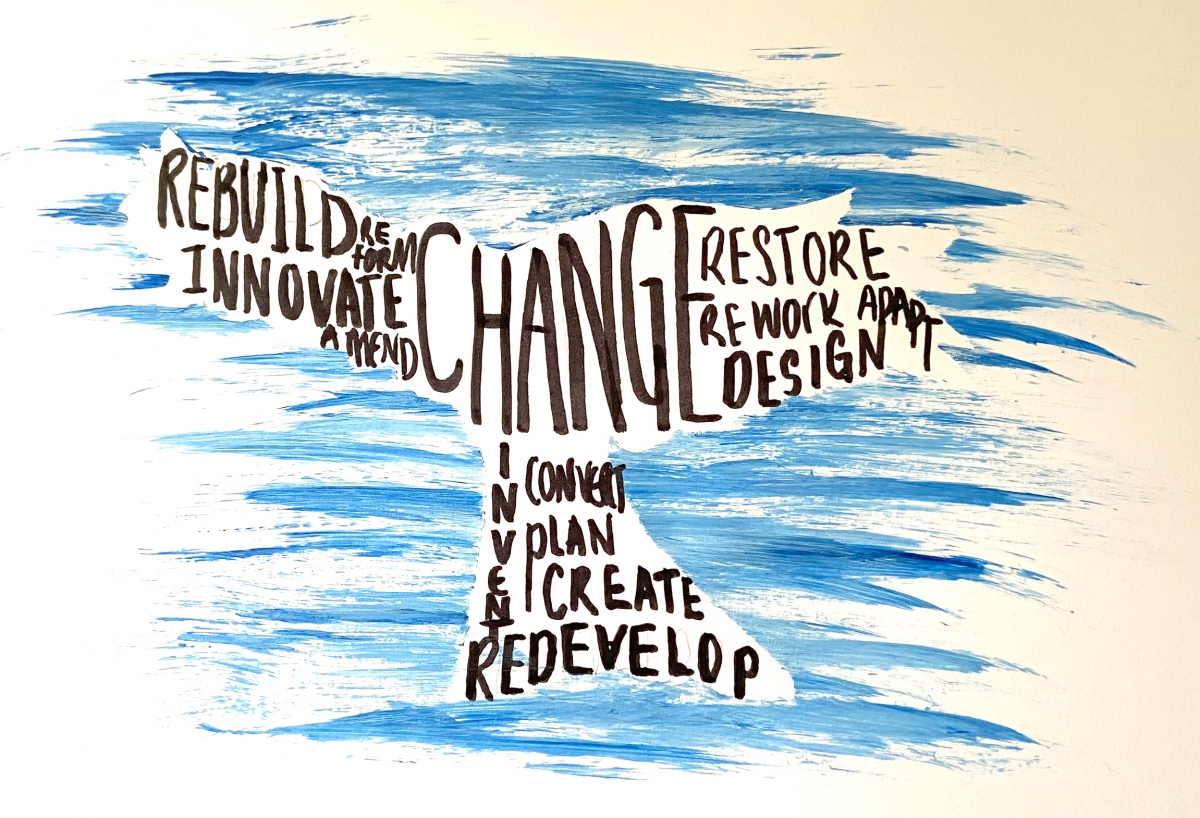 REBUILD
RE
FORM
INNOVATE
AMEND
CHANGE
RESTORE
REWORK ADAPT
DESIGN
INVENT
CONVERT
PLAN
CREATE
REDEVELOP